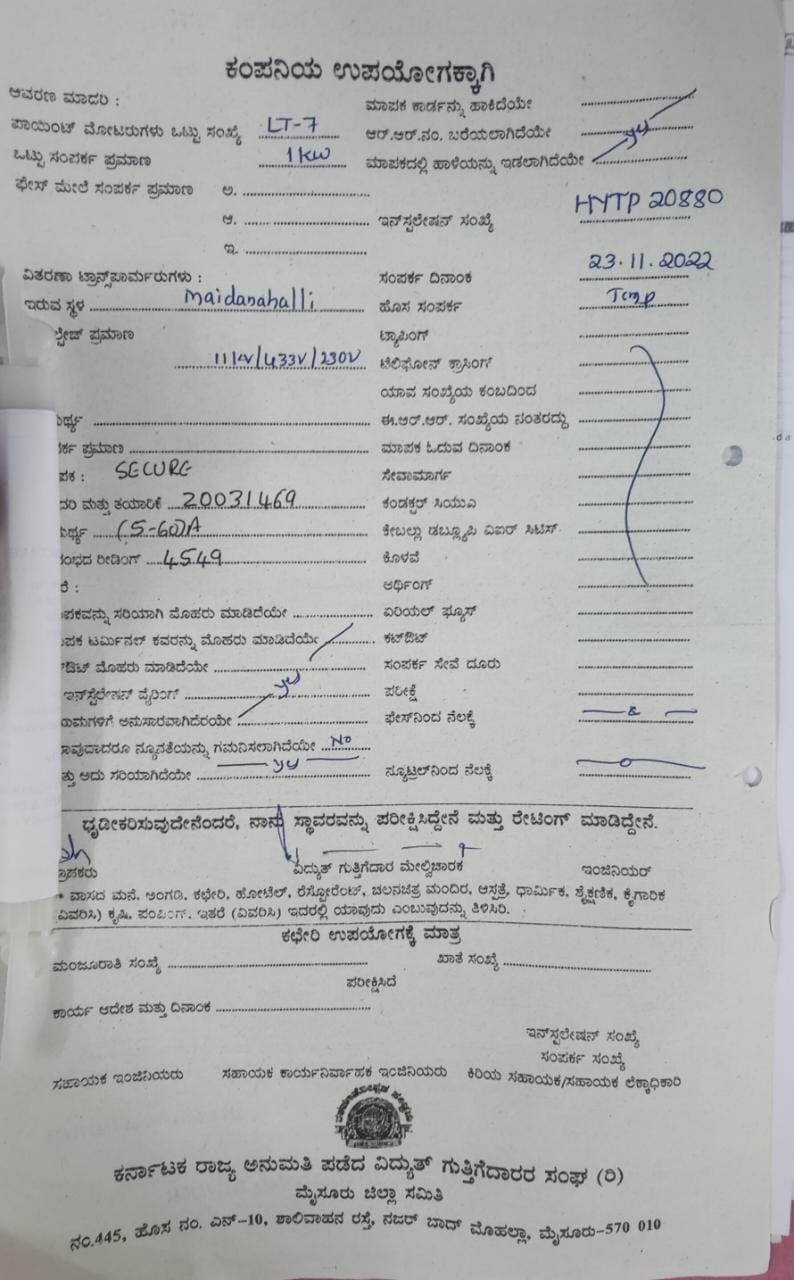 ಕಂಪನಿಯ ಉಪಯೋಗಕ್ಕಾಗಿ
ಆವರಣ ಮಾದರಿ : ಮಾಪಕ ಕಾರ್ಡನ್ನು ಹಾಕಿದೆಯೇ
ಪಾಯಿಂಟ್ ಮೋಟರುಗಳು ಒಟ್ಟು ಸಂಖ್ಯೆ LT-7 ಆರ್.ಆರ್.ನಂ. ಬರೆಯಲಾಗಿದೆಯೇ
ಒಟ್ಟು ಸಂಪರ್ಕ ಪ್ರಮಾಣ 1 KW ಮಾಪಕದಲ್ಲಿ ಹಾಳೆಯನ್ನು ಇಡಲಾಗಿದೆಯೇ
ಫೇಸ್ ಮೇಲೆ ಸಂಪರ್ಕ ಪ್ರಮಾಣ ಅ.
ಆ. ಇನ್‌ಸ್ಟಲೇಷನ್ ಸಂಖ್ಯೆ HYTP 20880
ಇ.
ವಿತರಣಾ ಟ್ರಾನ್ಸ್‌ಫಾರ್ಮರುಗಳು : ಸಂಪರ್ಕ ದಿನಾಂಕ 23.11.2022
ಇರುವ ಸ್ಥಳ Maidanahalli ಹೊಸ ಸಂಪರ್ಕ Temp
ಲ್ಟೇಜ್ ಪ್ರಮಾಣ ಟ್ಯಾಪಿಂಗ್
11KV/433V/230V ಟೆಲಿಫೋನ್ ಕ್ರಾಸಿಂಗ್
ಯಾವ ಸಂಖ್ಯೆಯ ಕಂಬದಿಂದ
ಈ.ಆರ್.ಆರ್. ಸಂಖ್ಯೆಯ ನಂತರದ್ದು
ರ್ಕ ಪ್ರಮಾಣ ಮಾಪಕ ಓದುವ ದಿನಾಂಕ
ಪಕ : SECURE ಸೇವಾಮಾರ್ಗ
ದರಿ ಮತ್ತು ತಯಾರಿಕೆ 20031469 ಕಂಡಕ್ಟರ್ ಸಿಯುಎ
(5-60)A ಕೇಬಲ್ಲು ಡಬ್ಲ್ಯೂಪಿ ವಿಐಆರ್ ಸಿಟಿಸ್
ಂಭದ ರೀಡಿಂಗ್ 4549 ಕೊಳವೆ
ರೆ : ಅರ್ಥಿಂಗ್
ಪಕವನ್ನು ಸರಿಯಾಗಿ ಮೊಹರು ಮಾಡಿದೆಯೇ ಏರಿಯಲ್ ಫ್ಯೂಸ್
ಪಕ ಟರ್ಮಿನಲ್ ಕವರನ್ನು ಮೊಹರು ಮಾಡಿದೆಯೇ ಕಟ್‌ಔಟ್
ಔಟ್ ಮೊಹರು ಮಾಡಿದೆಯೇ ಸಂಪರ್ಕ ಸೇವೆ ದೂರು
ಇನ್‌ಸ್ಟೆಲೇಷನ್ ವೈರಿಂಗ್ ಪರೀಕ್ಷೆ
ಯಮಗಳಿಗೆ ಅನುಸಾರವಾಗಿದೆರಯೇ ಫೇಸ್‌ನಿಂದ ನೆಲಕ್ಕೆ
ಾವುದಾದರೂ ನ್ಯೂನತೆಯನ್ನು ಗಮನಿಸಲಾಗಿದೆಯೇ No
ತ್ತು ಅದು ಸರಿಯಾಗಿದೆಯೇ ನ್ಯೂಟ್ರಲ್‌ನಿಂದ ನೆಲಕ್ಕೆ
ಧೃಡೀಕರಿಸುವುದೇನೆಂದರೆ, ನಾನು ಸ್ಥಾವರವನ್ನು ಪರೀಕ್ಷಿಸಿದ್ದೇನೆ ಮತ್ತು ರೇಟಿಂಗ್ ಮಾಡಿದ್ದೇನೆ.
ಸ್ಥಾಪಕರು ವಿದ್ಯುತ್ ಗುತ್ತಿಗೆದಾರ ಮೇಲ್ವಿಚಾರಕ ಇಂಜಿನಿಯರ್
* ವಾಸದ ಮನೆ, ಅಂಗಡಿ, ಕಛೇರಿ, ಹೋಟೆಲ್, ರೆಸ್ಟೋರೆಂಟ್, ಚಲನಚಿತ್ರ ಮಂದಿರ, ಆಸ್ಪತ್ರೆ, ಧಾರ್ಮಿಕ, ಶೈಕ್ಷಣಿಕ, ಕೈಗಾರಿಕ
ವಿವರಿಸಿ) ಕೃಷಿ, ಪಂಪಿಂಗ್, ಇತರೆ (ವಿವರಿಸಿ) ಇದರಲ್ಲಿ ಯಾವುದು ಎಂಬುವುದನ್ನು ತಿಳಿಸಿರಿ.
ಕಛೇರಿ ಉಪಯೋಗಕ್ಕೆ ಮಾತ್ರ
ಮಂಜೂರಾತಿ ಸಂಖ್ಯೆ ಖಾತೆ ಸಂಖ್ಯೆ
ಪರೀಕ್ಷಿಸಿದೆ
ಕಾರ್ಯ ಆದೇಶ ಮತ್ತು ದಿನಾಂಕ
ಇನ್‌ಸ್ಟಲೇಷನ್ ಸಂಖ್ಯೆ
ಸಂಪರ್ಕ ಸಂಖ್ಯೆ
ಸಹಾಯಕ ಇಂಜಿನಿಯರು ಸಹಾಯಕ ಕಾರ್ಯನಿರ್ವಾಹಕ ಇಂಜಿನಿಯರು ಕಿರಿಯ ಸಹಾಯಕ/ಸಹಾಯಕ ಲೆಕ್ಕಾಧಿಕಾರಿ
ಕರ್ನಾಟಕ ರಾಜ್ಯ ಅನುಮತಿ ಪಡೆದ ವಿದ್ಯುತ್ ಗುತ್ತಿಗೆದಾರರ ಸಂಘ (ರಿ)
ಮೈಸೂರು ಜಿಲ್ಲಾ ಸಮಿತಿ
ನಂ.445, ಹೊಸ ನಂ. ಎನ್-10, ಶಾಲಿವಾಹನ ರಸ್ತೆ, ನಜರ್ ಬಾದ್ ಮೊಹಲ್ಲಾ, ಮೈಸೂರು-570 010